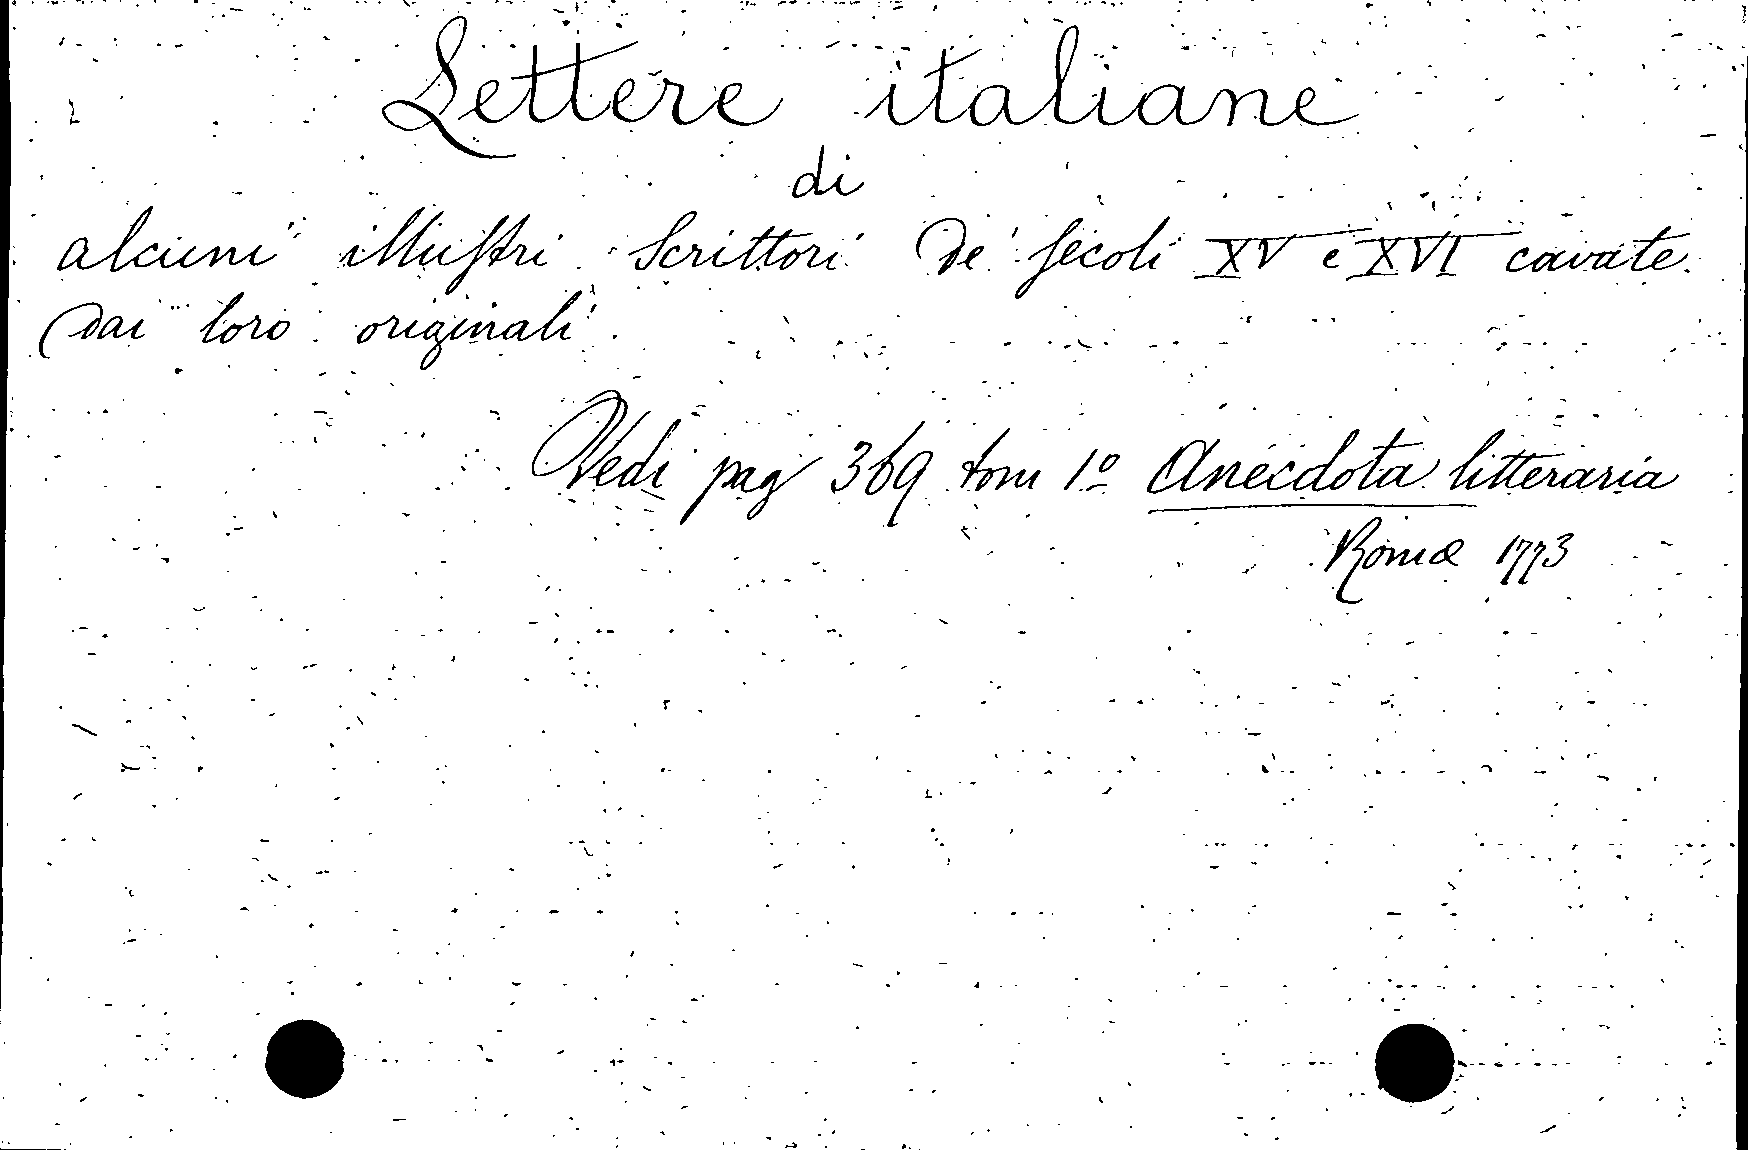 Lettere italiane
di
alcuni illustri Scrittori de' secoli XV e XVI cavate
dai loro originali
Vedi pag 369 tom 1º Anecdota litteraria
Romæ 1773